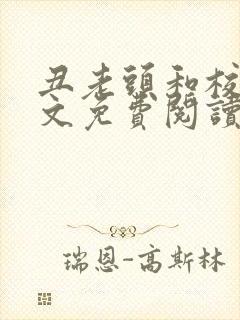 丑老頭和校
文免費閱讀
瑞恩-高斯林